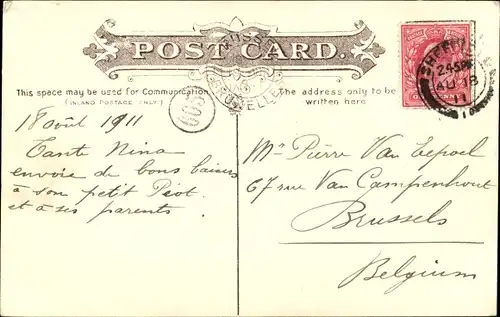 POST CARD.
This space may be used for Communication
(INLAND POSTAGE ONLY.)
The address only to be
written here
BRUXELLES
603
SHEFFIELD
2.45 PM
AU 18
11
18 août 1911
Tante Nina
envoie de bons baisers
à son petit Piot
et à ses parents
Mr Pierre Van Eepoel
67 rue Van Campenhout
Brussels
Belgium